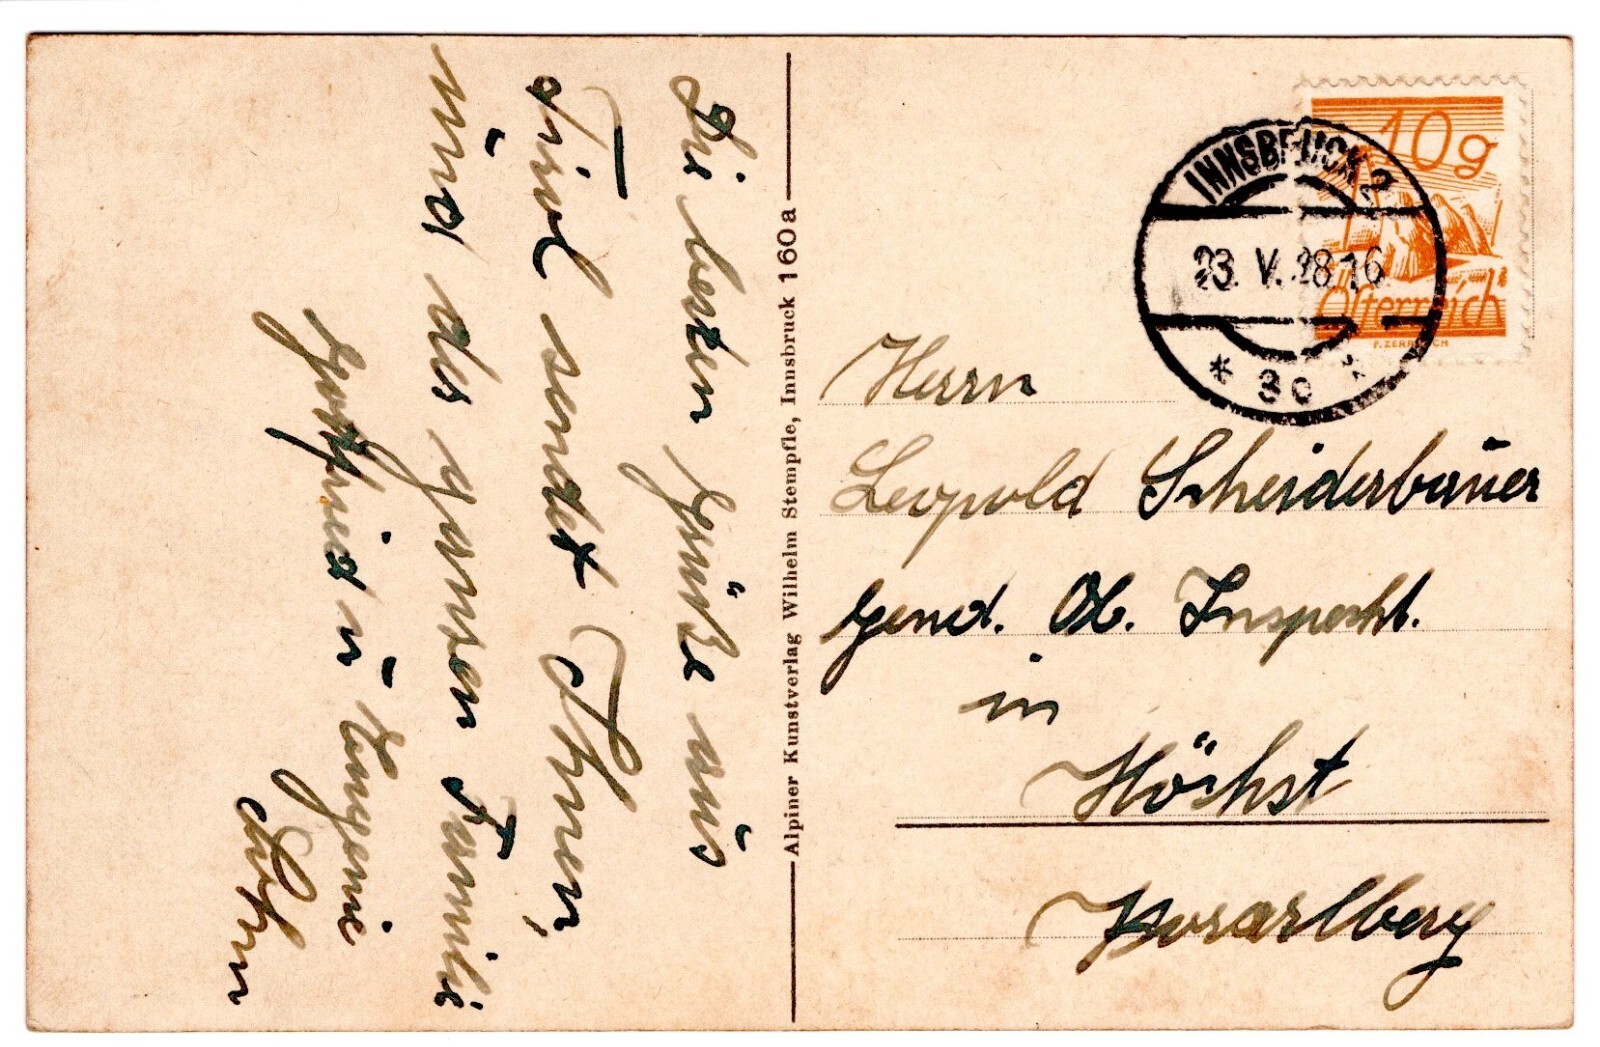 Die besten Grüße aus
Tirol sendet Ihnen,
und der ganzen Familie
Gottfried u Eugenie
Alpiner Kunstverlag Wilhelm Stempfle, Innsbruck 160a
10g
Österreich
F. ZERRITSCH
INNSBRUCK 2
23. V. 28 16
* 3c *
Herrn
Leopold Scheiderbauer
Gend. Ob. Inspecht.
in
Höchst
Vorarlberg